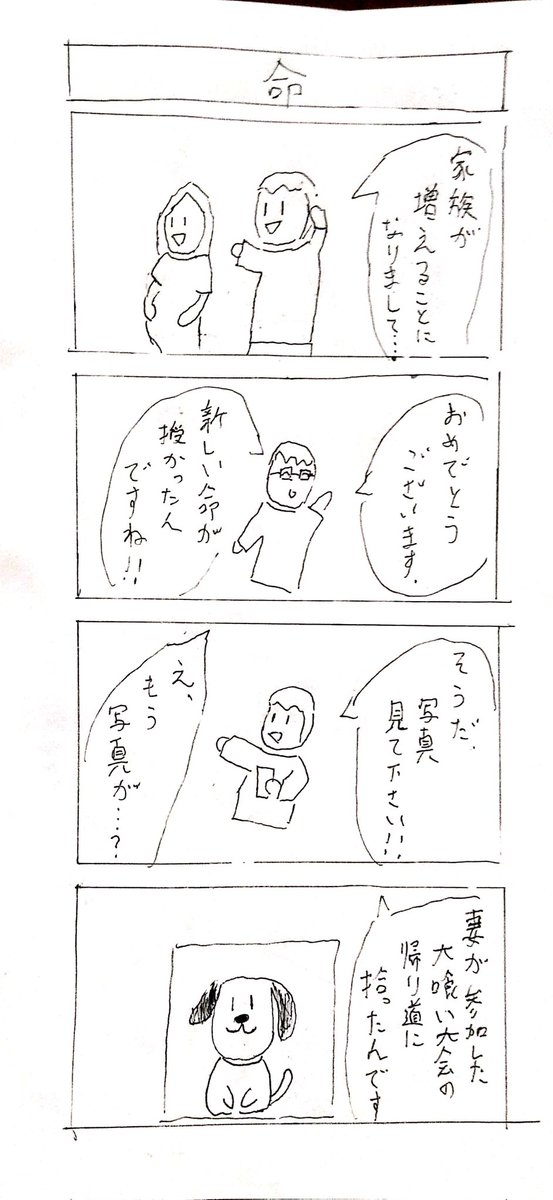 命
家族が
増えることに
なりまして…
おめでとう
ございます。
新しい命が
授かったん
ですね!!
そうだ、
写真
見て下さい!!
え、
もう
写真が…?
妻が参加した
大喰い大会の
帰り道に
拾ったんです